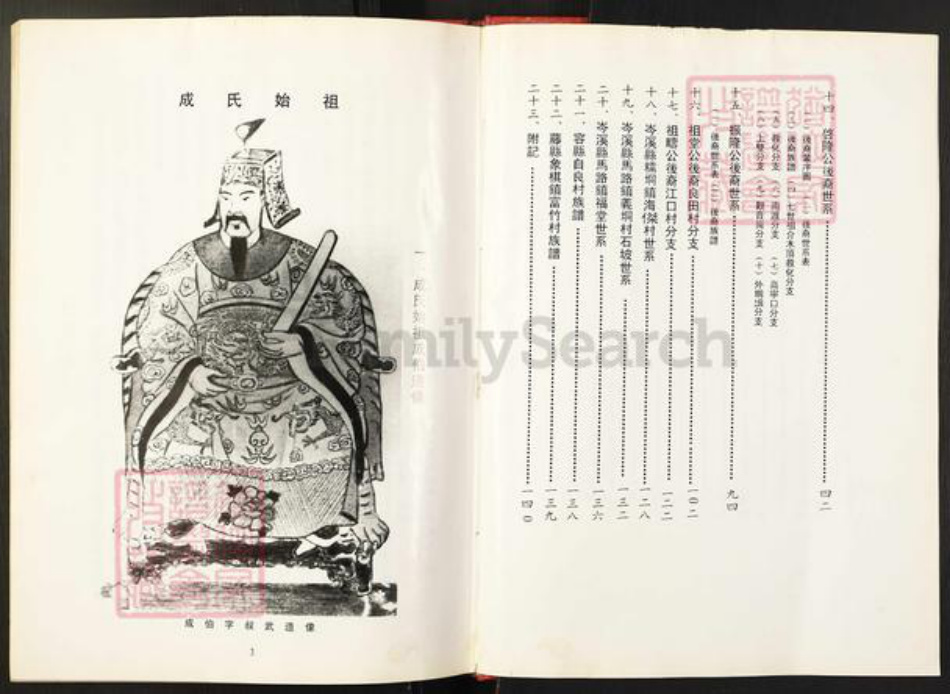 十四、啓隆公後裔世系 四二
後裔世系表
後裔族譜 (四)七世祖介木須敦化分支
敦化分支 (六) 分支 (七) 口分支
(八)上雙分支 (九) 分支 (十) 分支
十五、振隆公後裔世系 九四
(一)後裔世系表 (二)後裔族譜
十六、祖堂公後裔良田村分支 一〇二
十七、祖疇公後裔江口村分支 一二二
十八、岑溪縣糯垌鎮海傑村世系 一二八
十九、岑溪縣馬路鎮義垌村石坡世系 一三二
二十、岑溪縣馬路鎮福堂世系 一三六
二十一、容縣自良村族譜 一三八
二十二、藤縣象棋鎮富竹村族譜 一三九
二十三、附記 一四〇
成氏始祖
成伯字叔武造像
1
FamilySearch